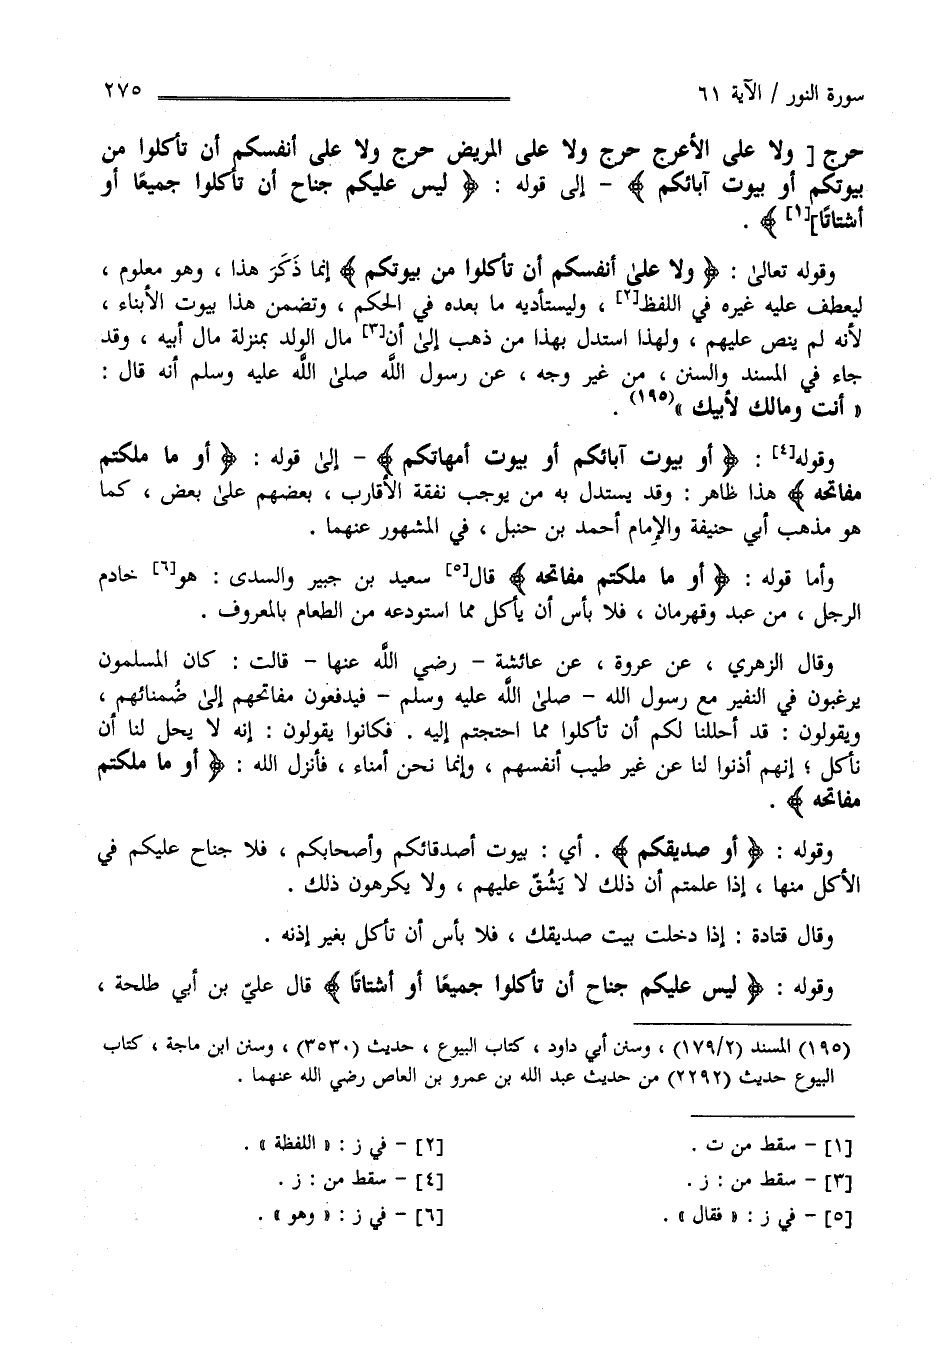 سورة النور / الآية ٦١ ٢٧٥
حرج [ ولا على الأعرج حرج ولا على المريض حرج ولا على أنفسكم أن تأكلوا من
بيوتكم أو بيوت آبائكم ﴾ - إلى قوله : ﴿ ليس عليكم جناح أن تأكلوا جميعًا أو
أشتاتًا][١] ﴾ .
وقوله تعالىٰ : ﴿ ولا علىٰ أنفسكم أن تأكلوا من بيوتكم ﴾ إنما ذَكَرَ هذا ، وهو معلوم ،
ليعطف عليه غيره في اللفظ[٢] ، وليستأديه ما بعده في الحكم ، وتضمن هذا بيوت الأبناء ،
لأنه لم ينص عليهم ، ولهذا استدل بهذا من ذهب إلىٰ أن[٣] مال الولد بمنزلة مال أبيه ، وقد
جاء في المسند والسنن ، من غير وجه ، عن رسول اللَّه صلىٰ اللَّه عليه وسلم أنه قال :
« أنت ومالك لأبيك »(١٩٥) .
وقوله[٤] : ﴿ أو بيوت آبائكم أو بيوت أمهاتكم ﴾ - إلىٰ قوله : ﴿ أو ما ملكتم
مفاتحه ﴾ هذا ظاهر : وقد يستدل به من يوجب نفقة الأقارب ، بعضهم علىٰ بعض ، كما
هو مذهب أبي حنيفة والإمام أحمد بن حنبل ، في المشهور عنهما .
وأما قوله : ﴿ أو ما ملكتم مفاتحه ﴾ قال[٥] سعيد بن جبير والسدى : هو[٦] خادم
الرجل ، من عبد وقهرمان ، فلا بأس أن يأكل مما استودعه من الطعام بالمعروف .
وقال الزهري ، عن عروة ، عن عائشة - رضي اللَّه عنها - قالت : كان المسلمون
يرغبون في النفير مع رسول الله - صلىٰ اللَّه عليه وسلم - فيدفعون مفاتحهم إلىٰ ضُمنائهم ،
ويقولون : قد أحللنا لكم أن تأكلوا مما احتجتم إليه . فكانوا يقولون : إنه لا يحل لنا أن
نأكل ؛ إنهم أذنوا لنا عن غير طيب أنفسهم ، وإنما نحن أمناء ، فأنزل الله : ﴿ أو ما ملكتم
مفاتحه ﴾ .
وقوله : ﴿ أو صديقكم ﴾ . أي : بيوت أصدقائكم وأصحابكم ، فلا جناح عليكم في
الأكل منها ، إذا علمتم أن ذلك لا يَشُقّ عليهم ، ولا يكرهون ذلك .
وقال قتادة : إذا دخلت بيت صديقك ، فلا بأس أن تأكل بغير إذنه .
وقوله : ﴿ ليس عليكم جناح أن تأكلوا جميعًا أو أشتاتًا ﴾ قال عليّ بن أبي طلحة ،
(١٩٥) المسند (١٧٩/٢) ، وسنن أبي داود ، كتاب البيوع ، حديث (٣٥٣٠) ، وسنن ابن ماجة ، كتاب
البيوع حديث (٢٢٩٢) من حديث عبد الله بن عمرو بن العاص رضي الله عنهما .
[١] - سقط من ت . [٢] - في ز : « اللفظة » .
[٣] - سقط من : ز . [٤] - سقط من : ز .
[٥] - في ز : « فقال » . [٦] - في ز : « وهو » .